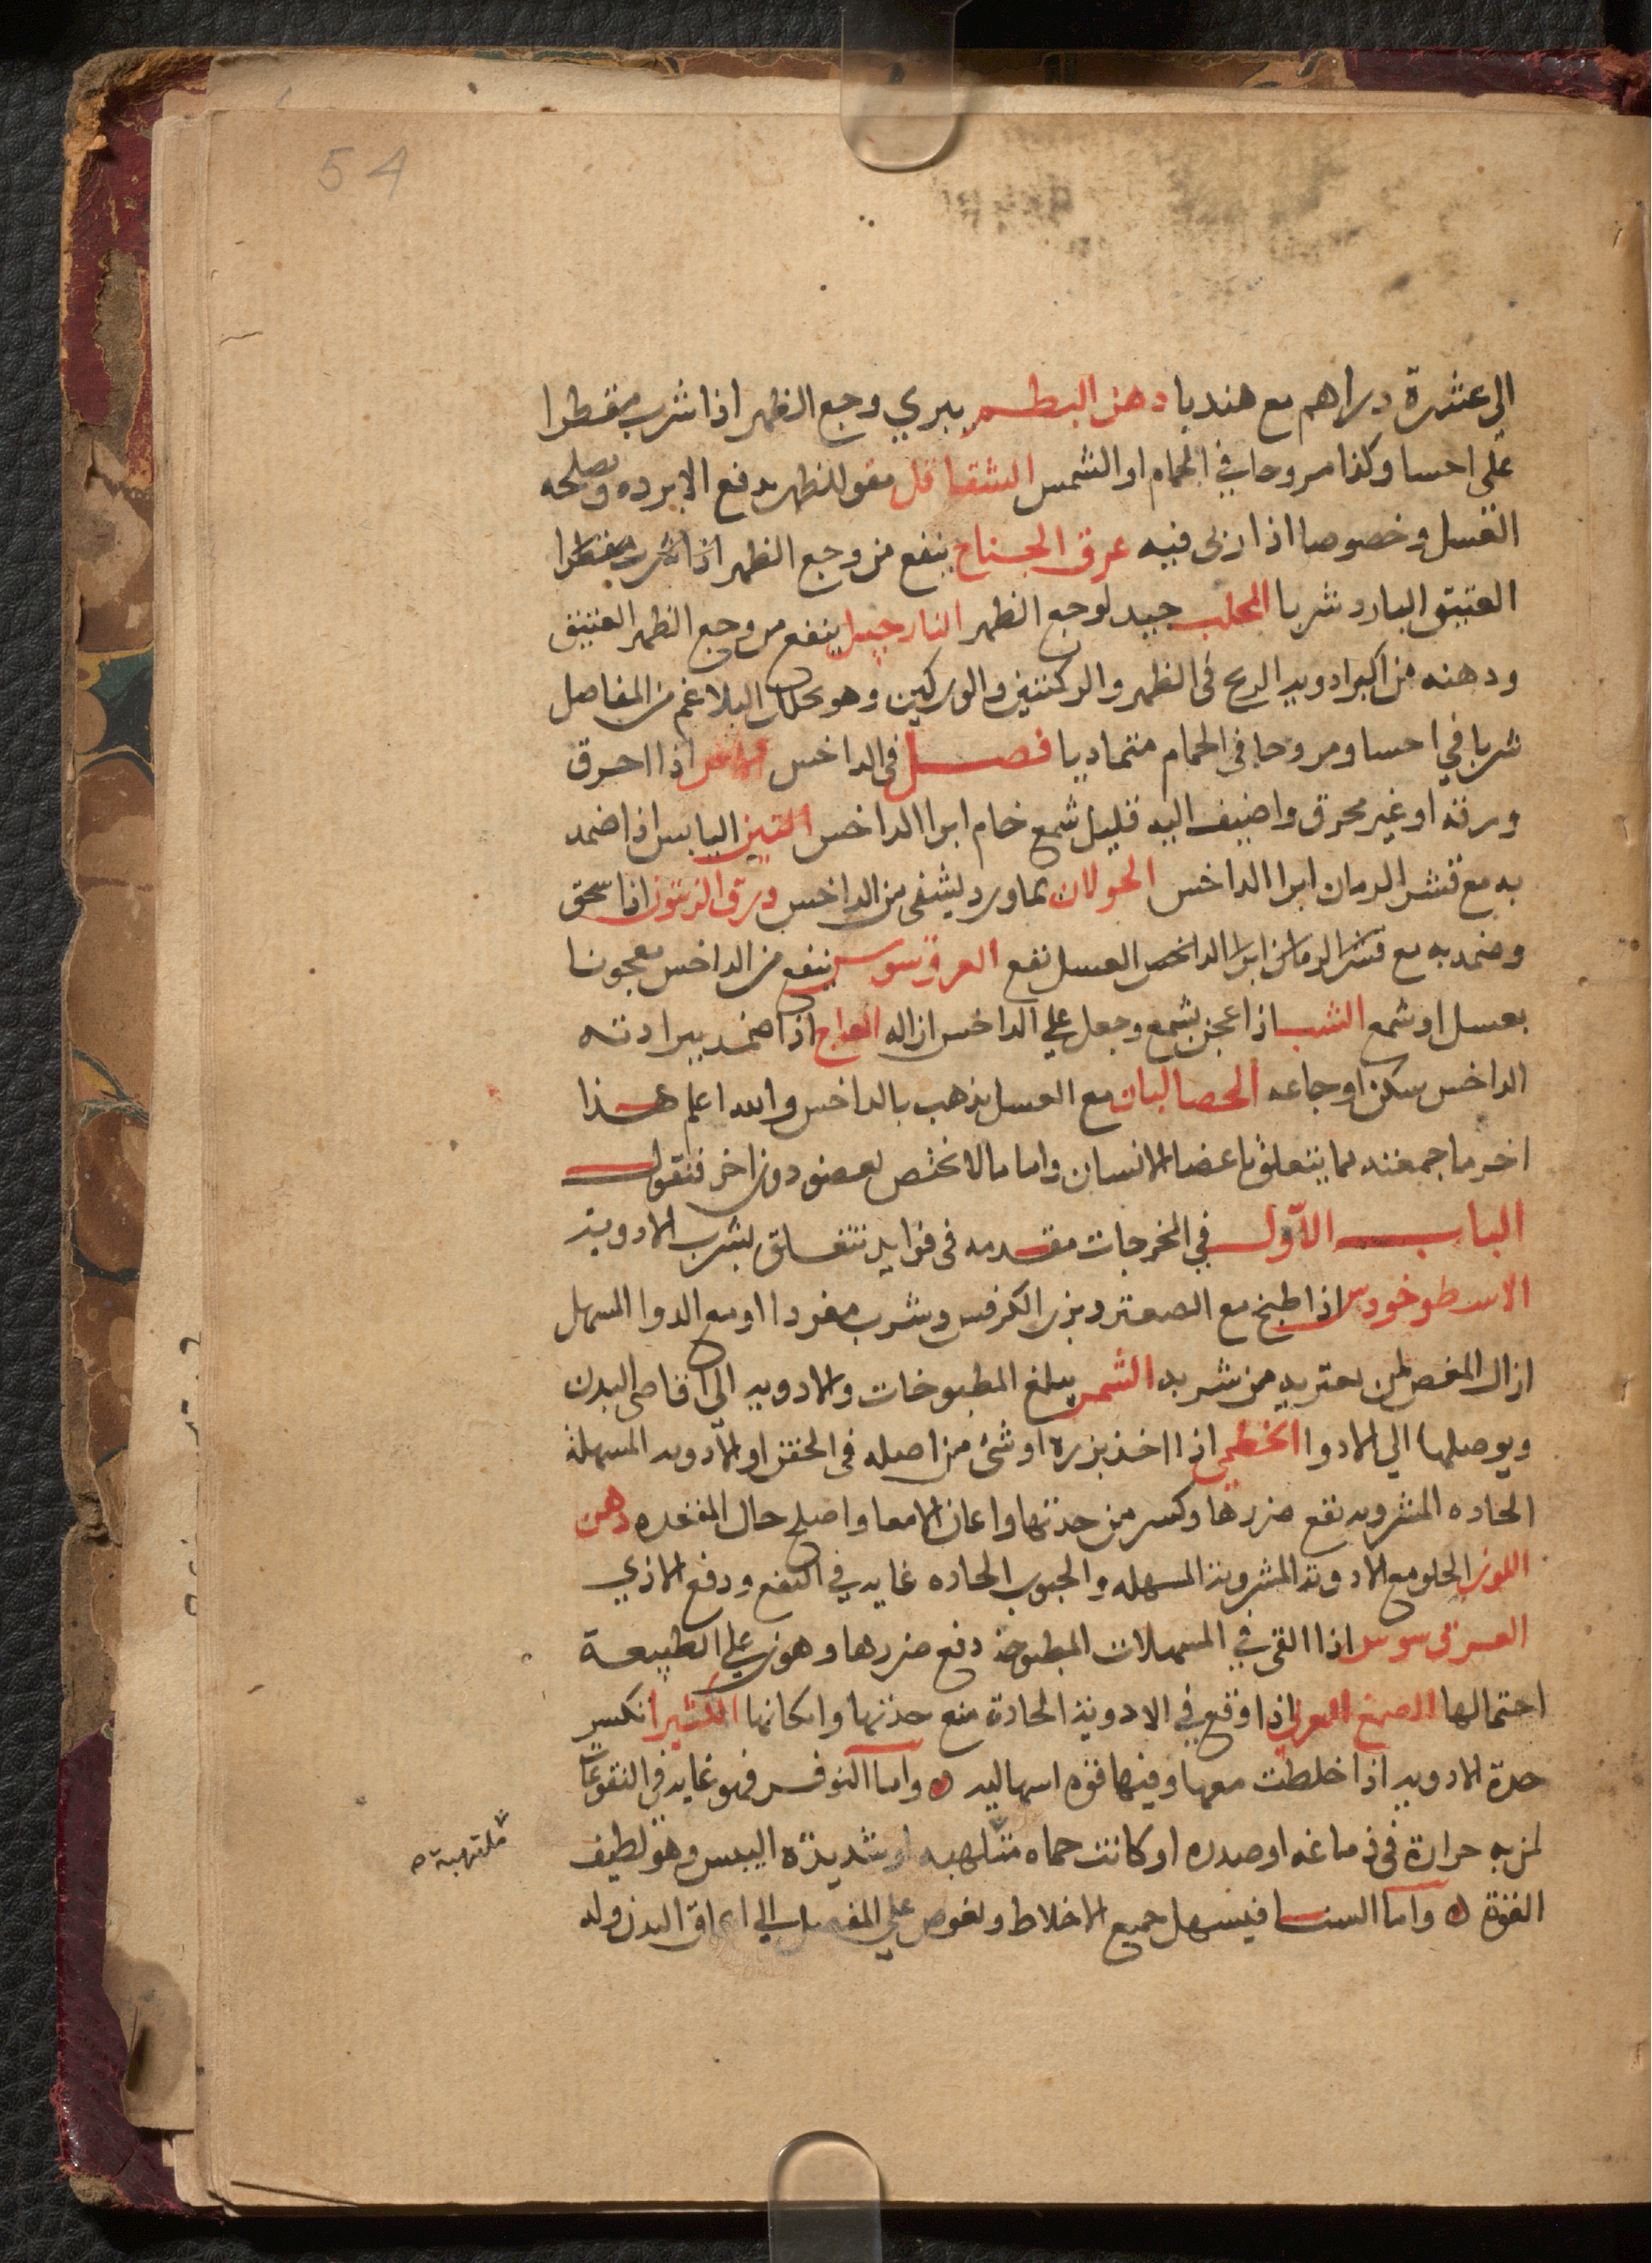 54
الى عشرة دراهم مع هندبا دهن البطم يبري وجع الظهر اذا شرب مقطرا
على احسا وكذا مروحا في الحمام او الشمس الشقاقل مقو للظهر يدفع الابرده ويصلحه
العسل وخصوصا اذا ربى فيه عرق الجناح ينفع من وجع الظهر اذا شرب مقطرا
العتيق البارد شربا المحلب جيد لوجع الظهر النارجيل ينفع من وجع الظهر العتيق
ودهنه من اكبر ادوية الريح في الظهر والركبتين والوركين وهو يحلل البلاغم من المفاصل
شربا في احسا ومروحا في الحمام متماديا فصل في الداخس اذا احرق
ورقه او غير محرق واضيف اليه قليل شمع خام ابرا الداخس التين اليابس اذا ضمد
به مع قشر الرمان ابرا الداخس الحولان بماورد يشفى من الداخس ورق الزيتون اذا سحق
وضمد به مع قشر الرمان ابرا الداخس العسل نفع العرق سوس ينفع من الداخس معجونا
بعسل او شمع الشب اذا عجن بشمع وجعل على الداخس ازاله العاج اذا ضمد ببرادته
الداخس سكن اوجاعه الحصا لبان مع العسل يذهب بالداخس والله اعلم هذا
اخر ما جمعته مما يتعلق باعضا الانسان واما ما لا يختص بعضو دون اخر فنقول
الباب الاول في المخرجات مقدمه في فوايد تتعلق بشرب الادوية
الاسطوخودس اذا طبخ مع الصعتر وبزر الكرفس وشرب مفردا او مع الدوا المسهل
ازال المغص لمن يعتريه من شربه الشمر يبلغ المطبوخات والادويه الى اقاصى البدن
ويوصلها الي الادوا الخطمي اذا اخذ بزره او شئ من اصله في الحقن او الادويه المسهلة
الحاده المشروبه نفع ضررها وكسر من حدتها واعان الامعا واصلح حال المقعده دهن
اللوز الحلو مع الادوية المشروبة المسهله والحبوب الحاده غايه في النفع ودفع الاذي
العرق سوس اذا القى في المسهلات المطبوخة دفع ضررها وهون على الطبيعة
احتمالها الصمغ العربى اذا وقع في الادوية الحادة منع حدتها وانكاتها الكثيرا تكسر
حدة الادويه اذا خلطت معها وفيها قوه اسهاليه واما النوفر فهو غايه في النقوعات
لمن به حرارة في دماغه او صدره او كانت حماه متلهبه او شديدة اليبس وهو لطيف
ملتهبة صح
القوة واما السنا فيسهل جميع الاخلاط ويغوص على المفاصل الي اعماق البدن وله